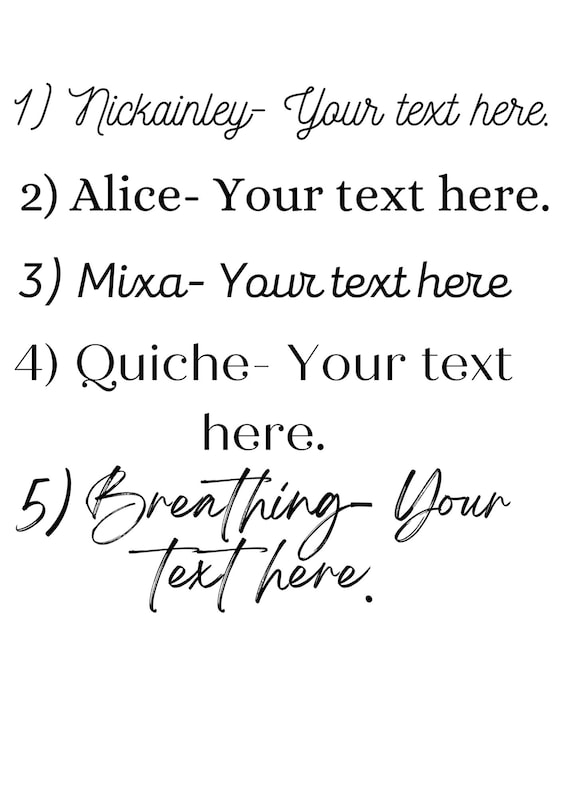 1) Nickainley- Your text here.
2) Alice- Your text here.
3) Mixa- Your text here
4) Quiche- Your text
here.
5) Breathing- Your
text here.